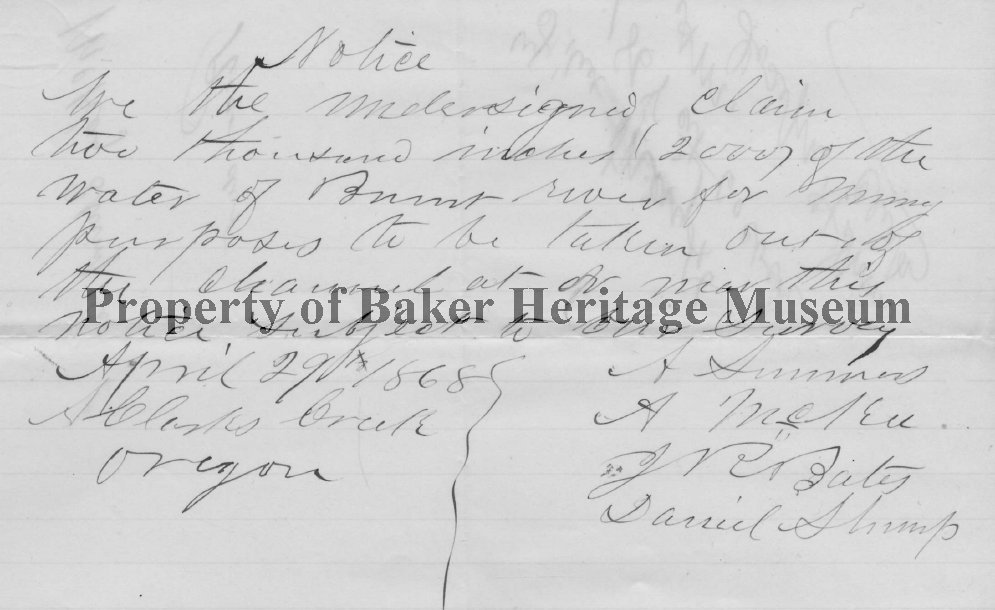 Notice
We the undersigned claim
two thousand inches (2000) of the
water of Burnt river for mining
purposes to be taken out of
the channel at or near this
Property of Baker Heritage Museum
notice subject to Survey
April 29th 1868
Clarks Creek
Oregon
A Summers
A McKee
J R Bates
Daniel Shimp